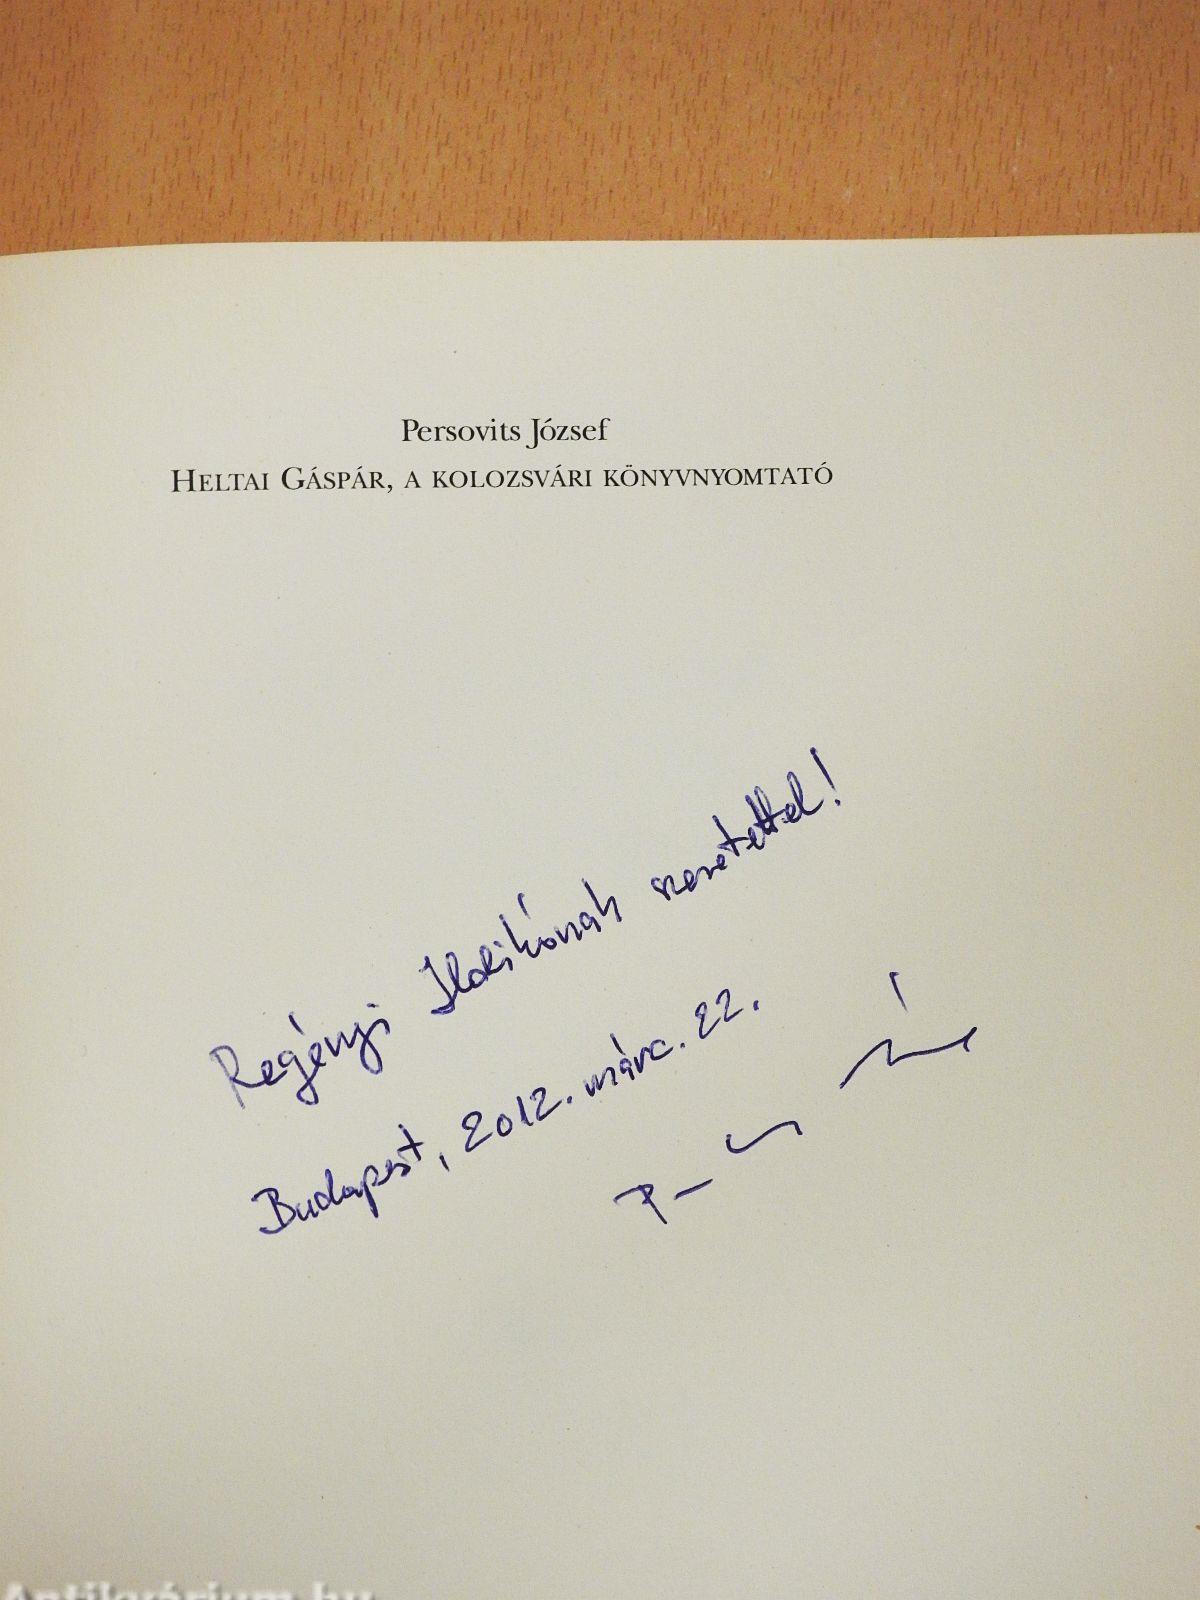 Persovits József
HELTAI GÁSPÁR, A KOLOZSVÁRI KÖNYVNYOMTATÓ
Regényi Ildikónak szeretettel!
Budapest, 2012. márc. 22.
Antikvárium.hu